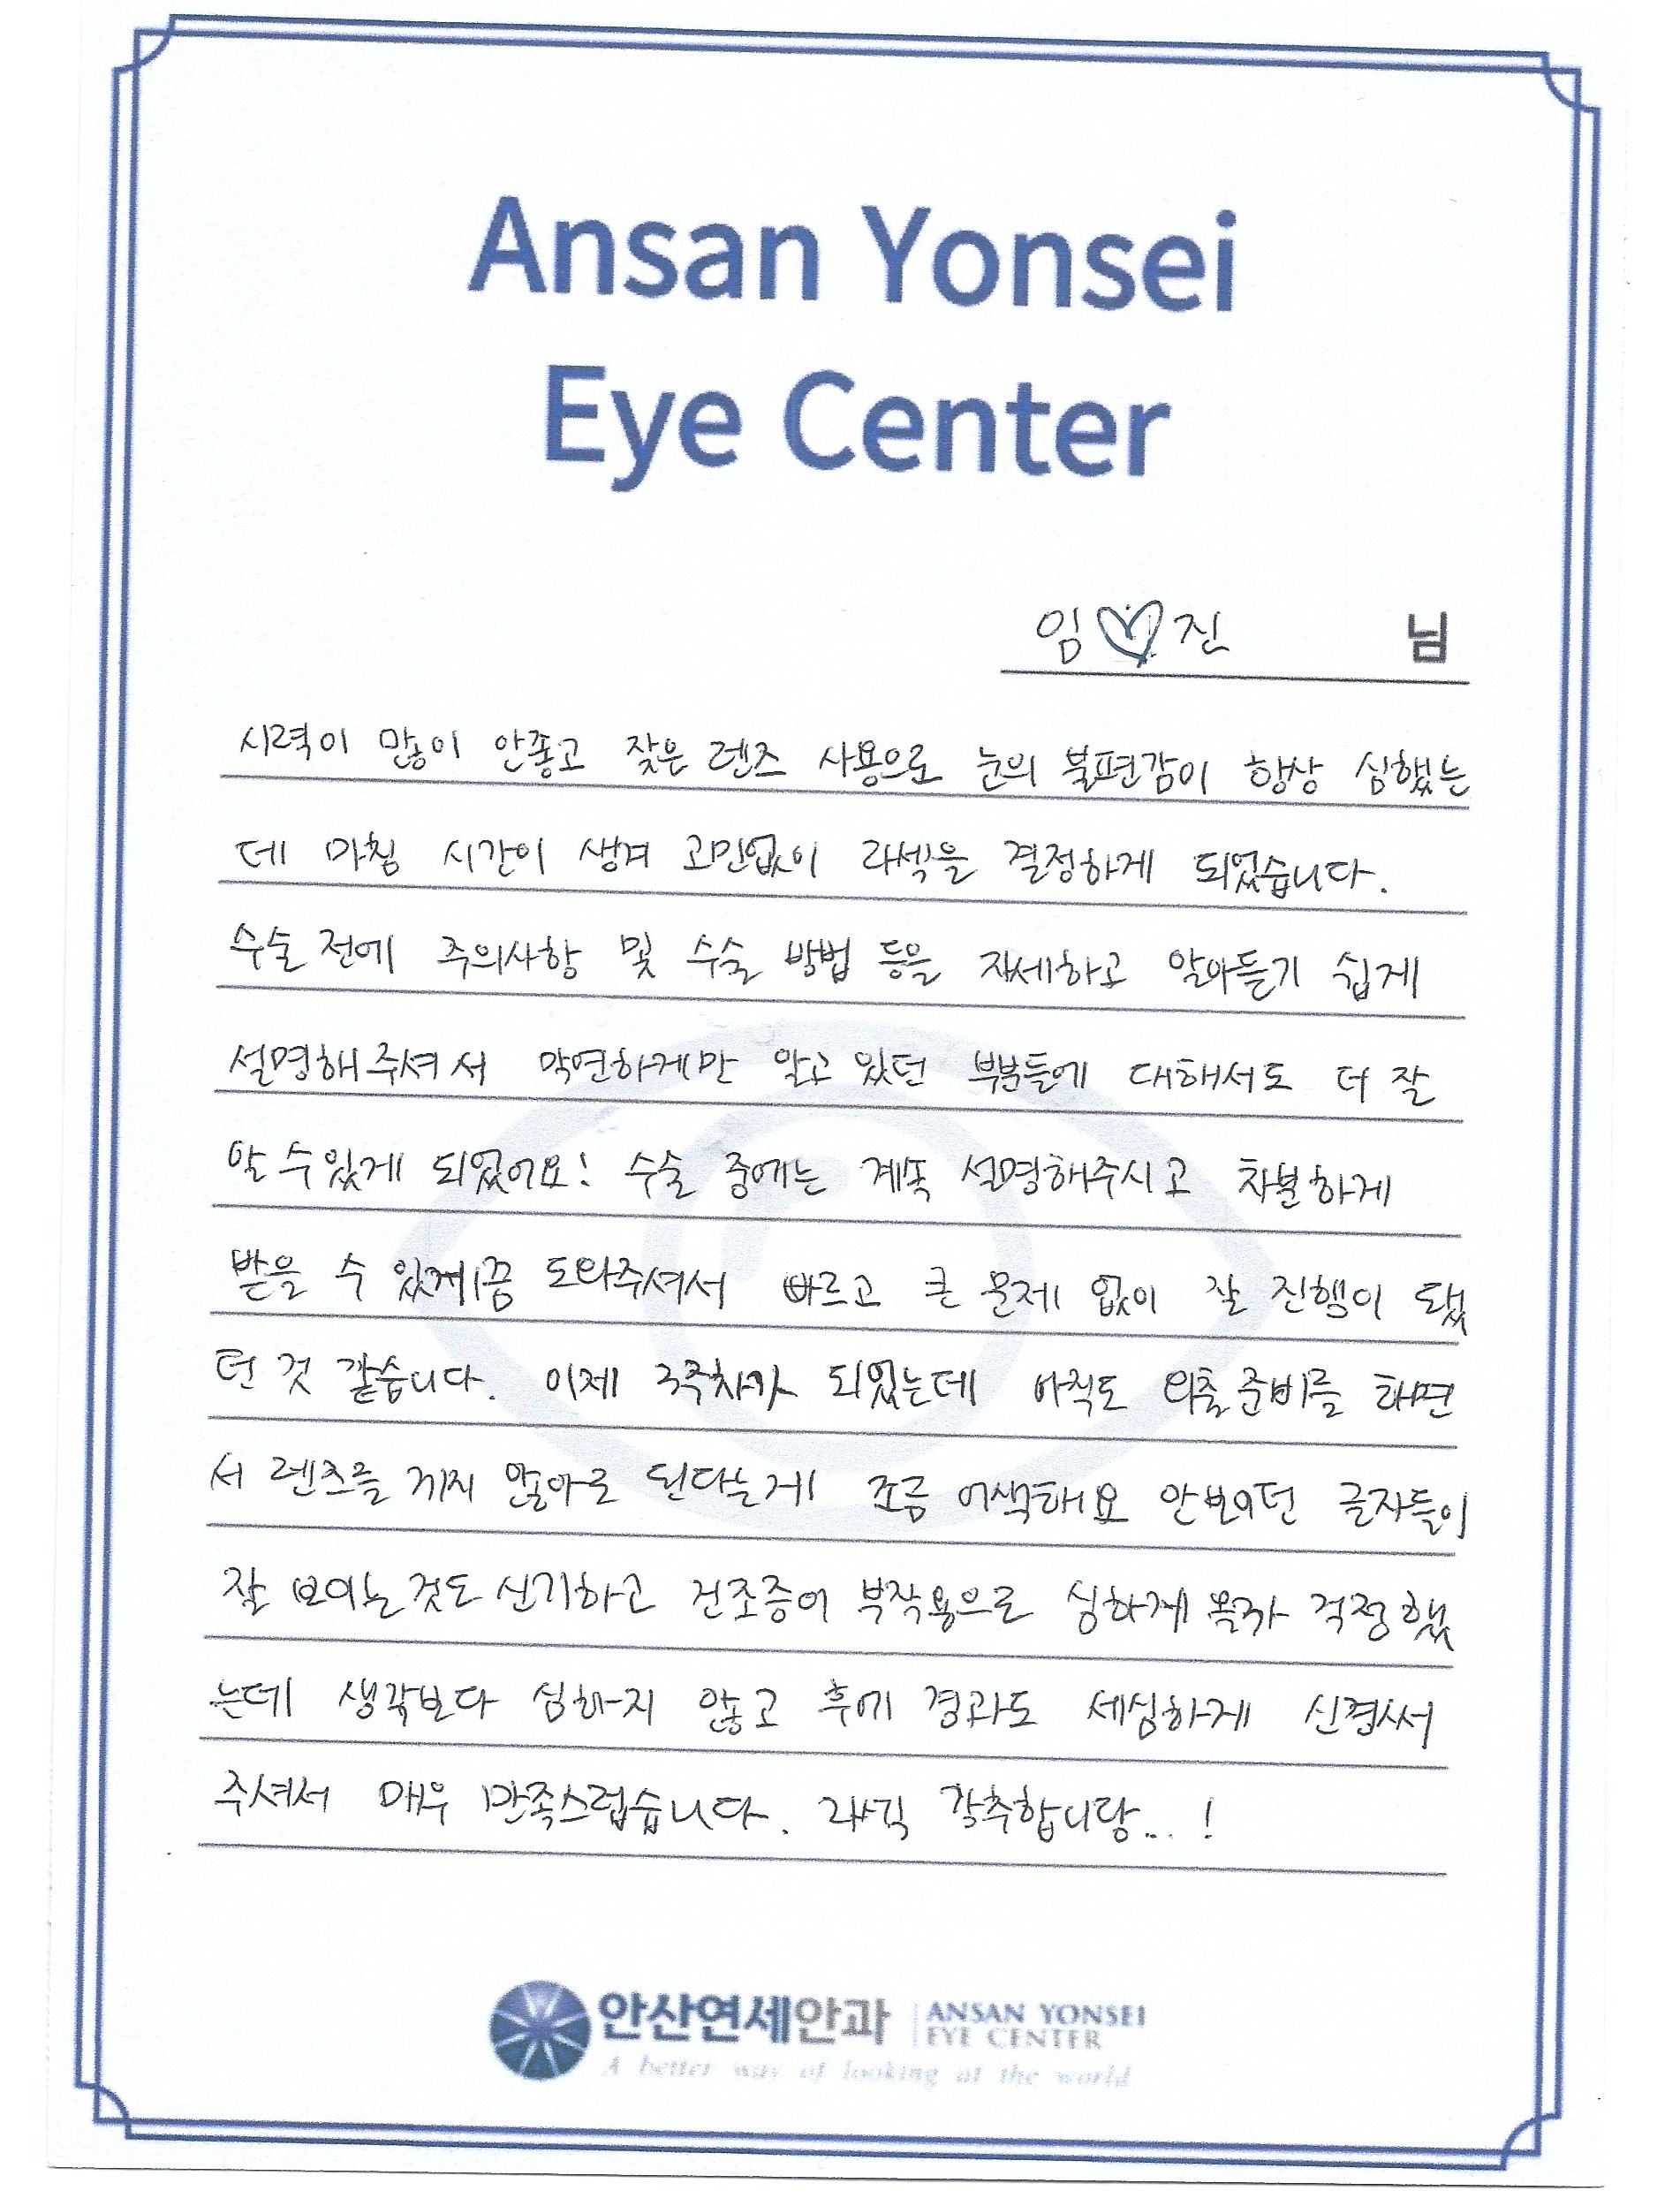 Ansan Yonsei
Eye Center
임♡진 님
시력이 많이 안좋고 잦은 렌즈 사용으로 눈의 불편감이 항상 심했는
데 마침 시간이 생겨 고민없이 라섹을 결정하게 되었습니다.
수술 전에 주의사항 및 수술 방법 등을 자세하고 알아듣기 쉽게
설명해주셔서 막연하게만 알고 있던 부분들에 대해서도 더 잘
알 수 있게 되었어요! 수술 중에는 계속 설명해주시고 차분하게
받을 수 있게끔 도와주셔서 빠르고 큰 문제 없이 잘 진행이 됐
던 것 같습니다. 이제 3주차가 되었는데 아직도 외출준비를 하면
서 렌즈를 끼지 않아도 된다는게 조금 어색해요 안보이던 글자들이
잘 보이는것도 신기하고 건조증이 부작용으로 심하게 올까 걱정했
는데 생각보다 심하지 않고 후에 경과도 세심하게 신경써
주셔서 매우 만족스럽습니다. 라식 강추합니당...!
안산연세안과 ANSAN YONSEI
EYE CENTER
A better way of looking at the world